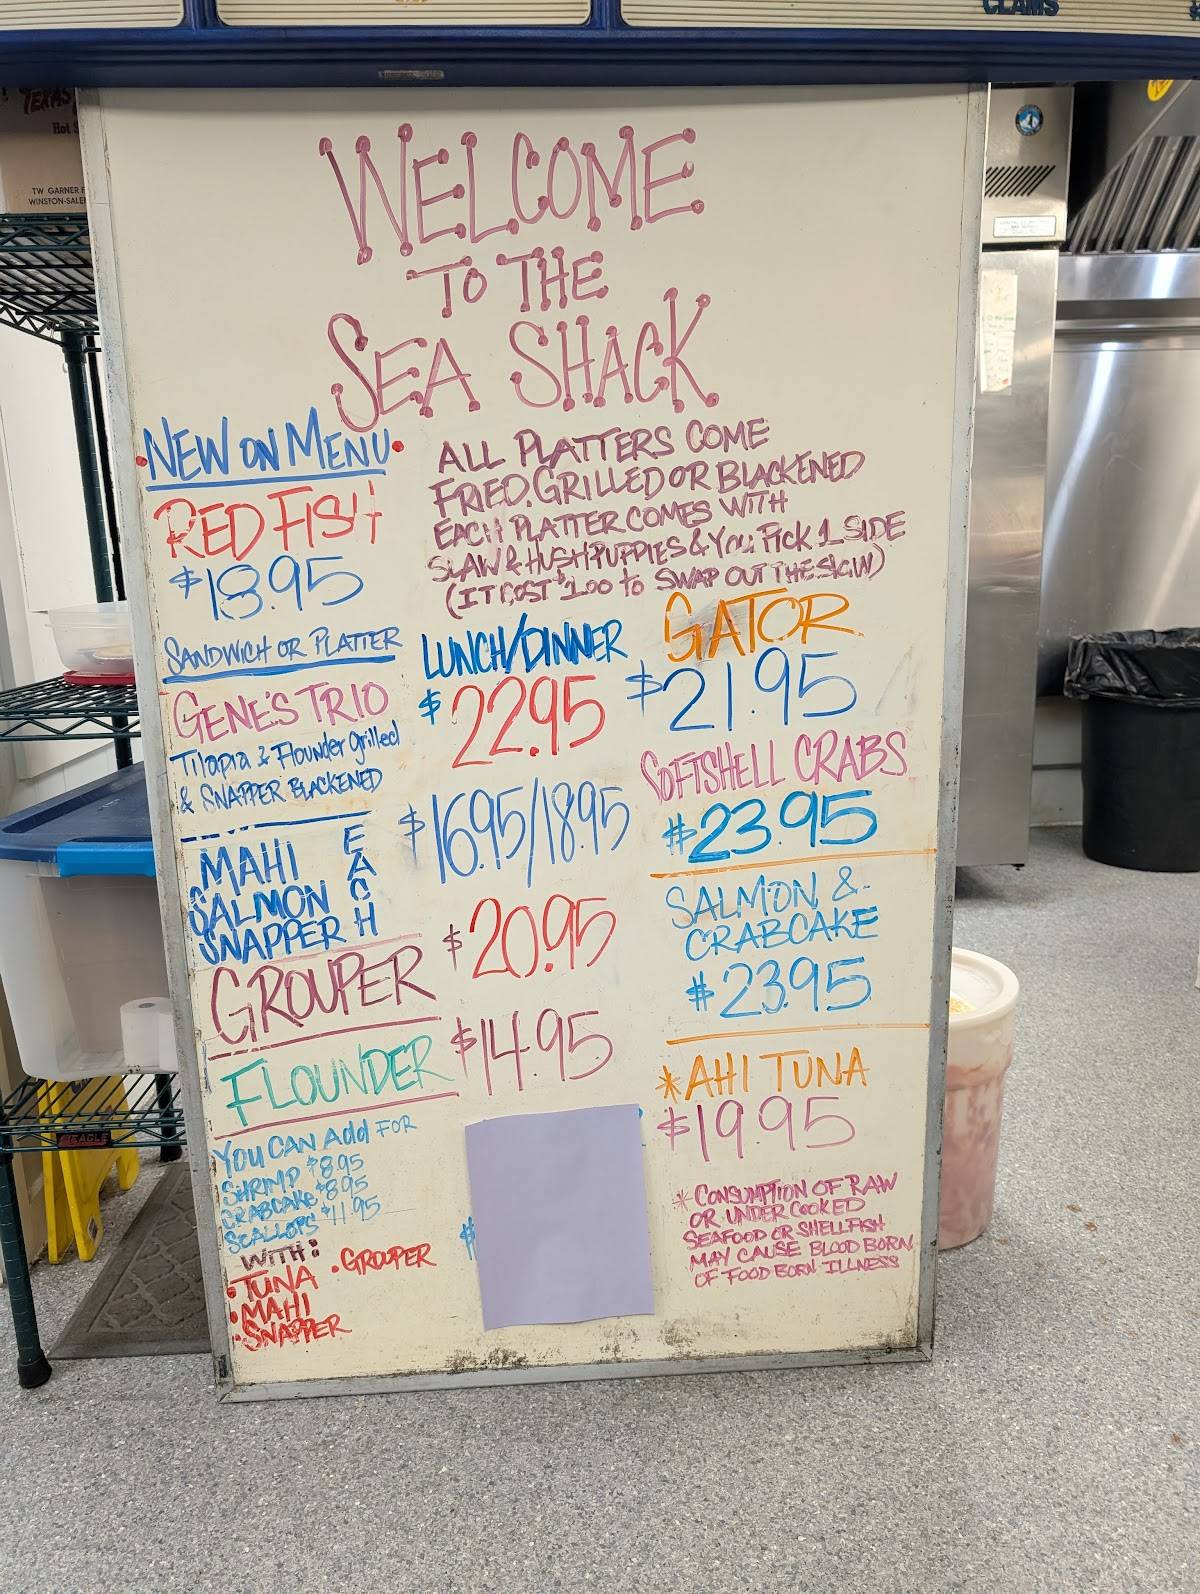 CLAMS
TEXAS
Hot
TW GARNER
WINSTON-SALE
WELCOME
TO THE
SEA SHACK
NEW ON MENU
RED FISH
$18.95
SANDWICH OR PLATTER
ALL PLATTERS COME
FRIED, GRILLED OR BLACKENED
EACH PLATTER COMES WITH
SLAW & HUSHPUPPIES & YOU PICK 1 SIDE
(IT COST $1.00 to SWAP OUT THE SLAW)
LUNCH/DINNER
GENE'S TRIO
$22.95
Tilapia & Flounder grilled
& SNAPPER BLACKENED
MAHI
SALMON
SNAPPER
EACH
$16.95/18.95
GROUPER
$20.95
FLOUNDER
$14.95
YOU CAN Add FOR
SHRIMP $8.95
CRABCAKE $8.95
SCALLOPS $11.95
WITH:
• TUNA • GROUPER
• MAHI
• SNAPPER
GATOR
$21.95
SOFTSHELL CRABS
$23.95
SALMON &
CRABCAKE
$23.95
*AHI TUNA
$19.95
* CONSUMPTION OF RAW
OR UNDERCOOKED
SEAFOOD OR SHELLFISH
MAY CAUSE BLOOD BORN
OF FOOD BORN ILLNESS
EAGLE